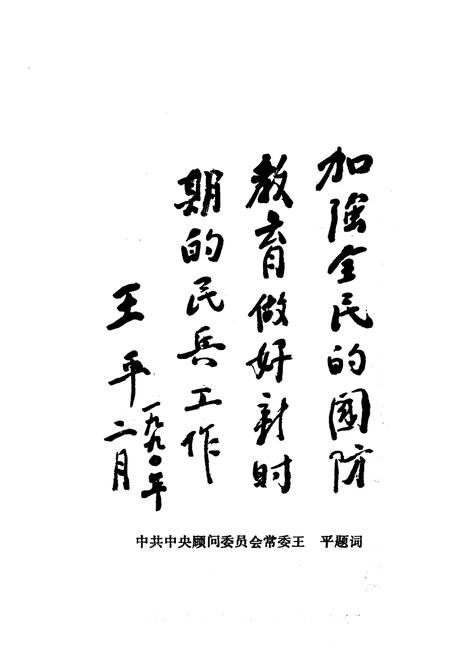 加强全民的国防
教育做好新时
期的民兵工作
王平
一九九〇年
二月
中共中央顾问委员会常委王　平题词